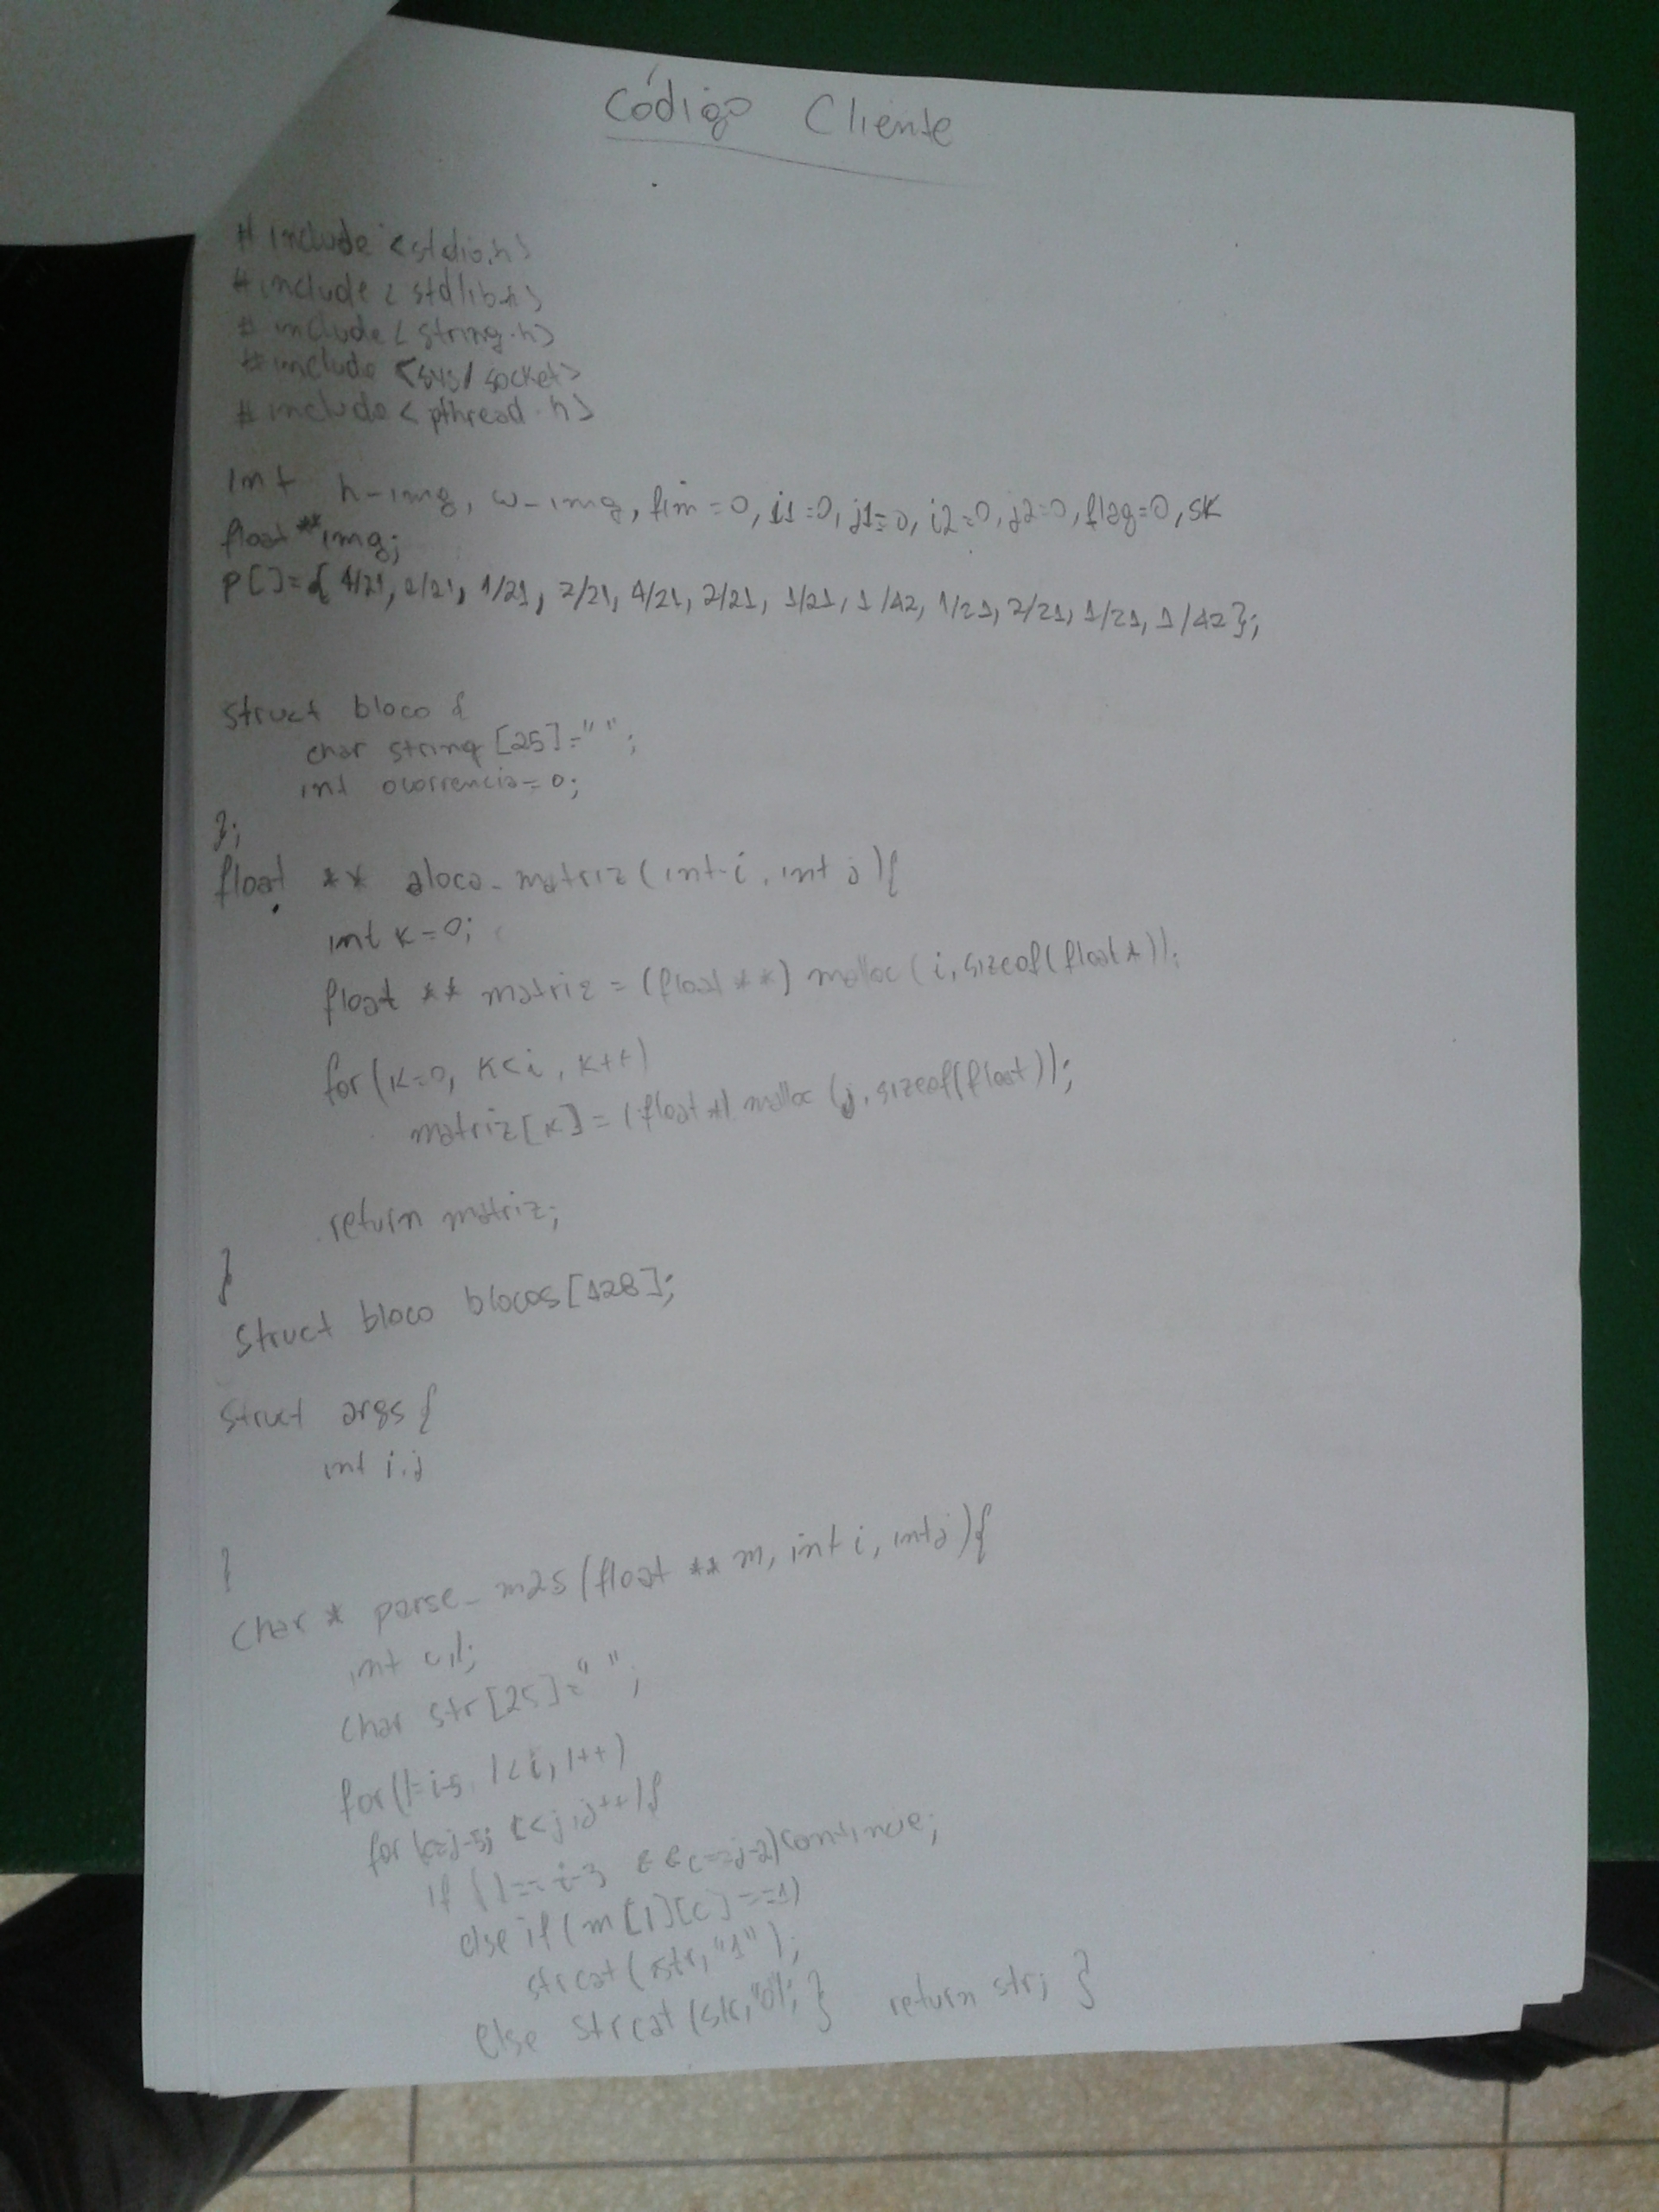 Código Cliente
# include <stdio.h>
# include <stdlib.h>
# include < string.h>
# include <sys/ socket>
# include < pthread.h>
int h-img, w-img, fim = 0, i1=0, j1=0, i2=0, j2=0, flag=0, sk
float **img;
P[]={ 4/21, 2/21, 1/21, 2/21, 4/21, 2/21, 1/21, 1/42, 1/21, 2/21, 1/21, 1/42};
struct bloco {
char string [25]=" ";
int ocorrencia=0;
};
float ** aloca_matriz (int i, int j){
int k=0;
float ** matriz = (float **) malloc (i, sizeof(float*));
for(k=0, k<i, k++)
matriz[k] = (float *) malloc (j, sizeof(float));
return matriz;
}
struct bloco blocos[128];
struct args {
int i,j
}
char * parse_m25 (float ** m, int i, int j){
int c,l;
char str[25]=" ";
for(l=i-5, l<i, l++)
for (c=j-5; c<j, j++){
if (l== i-3 && c==j-2) continue;
else if (m[l][c]==1)
strcat (str, "1");
else strcat (str, "0"; } return str; }